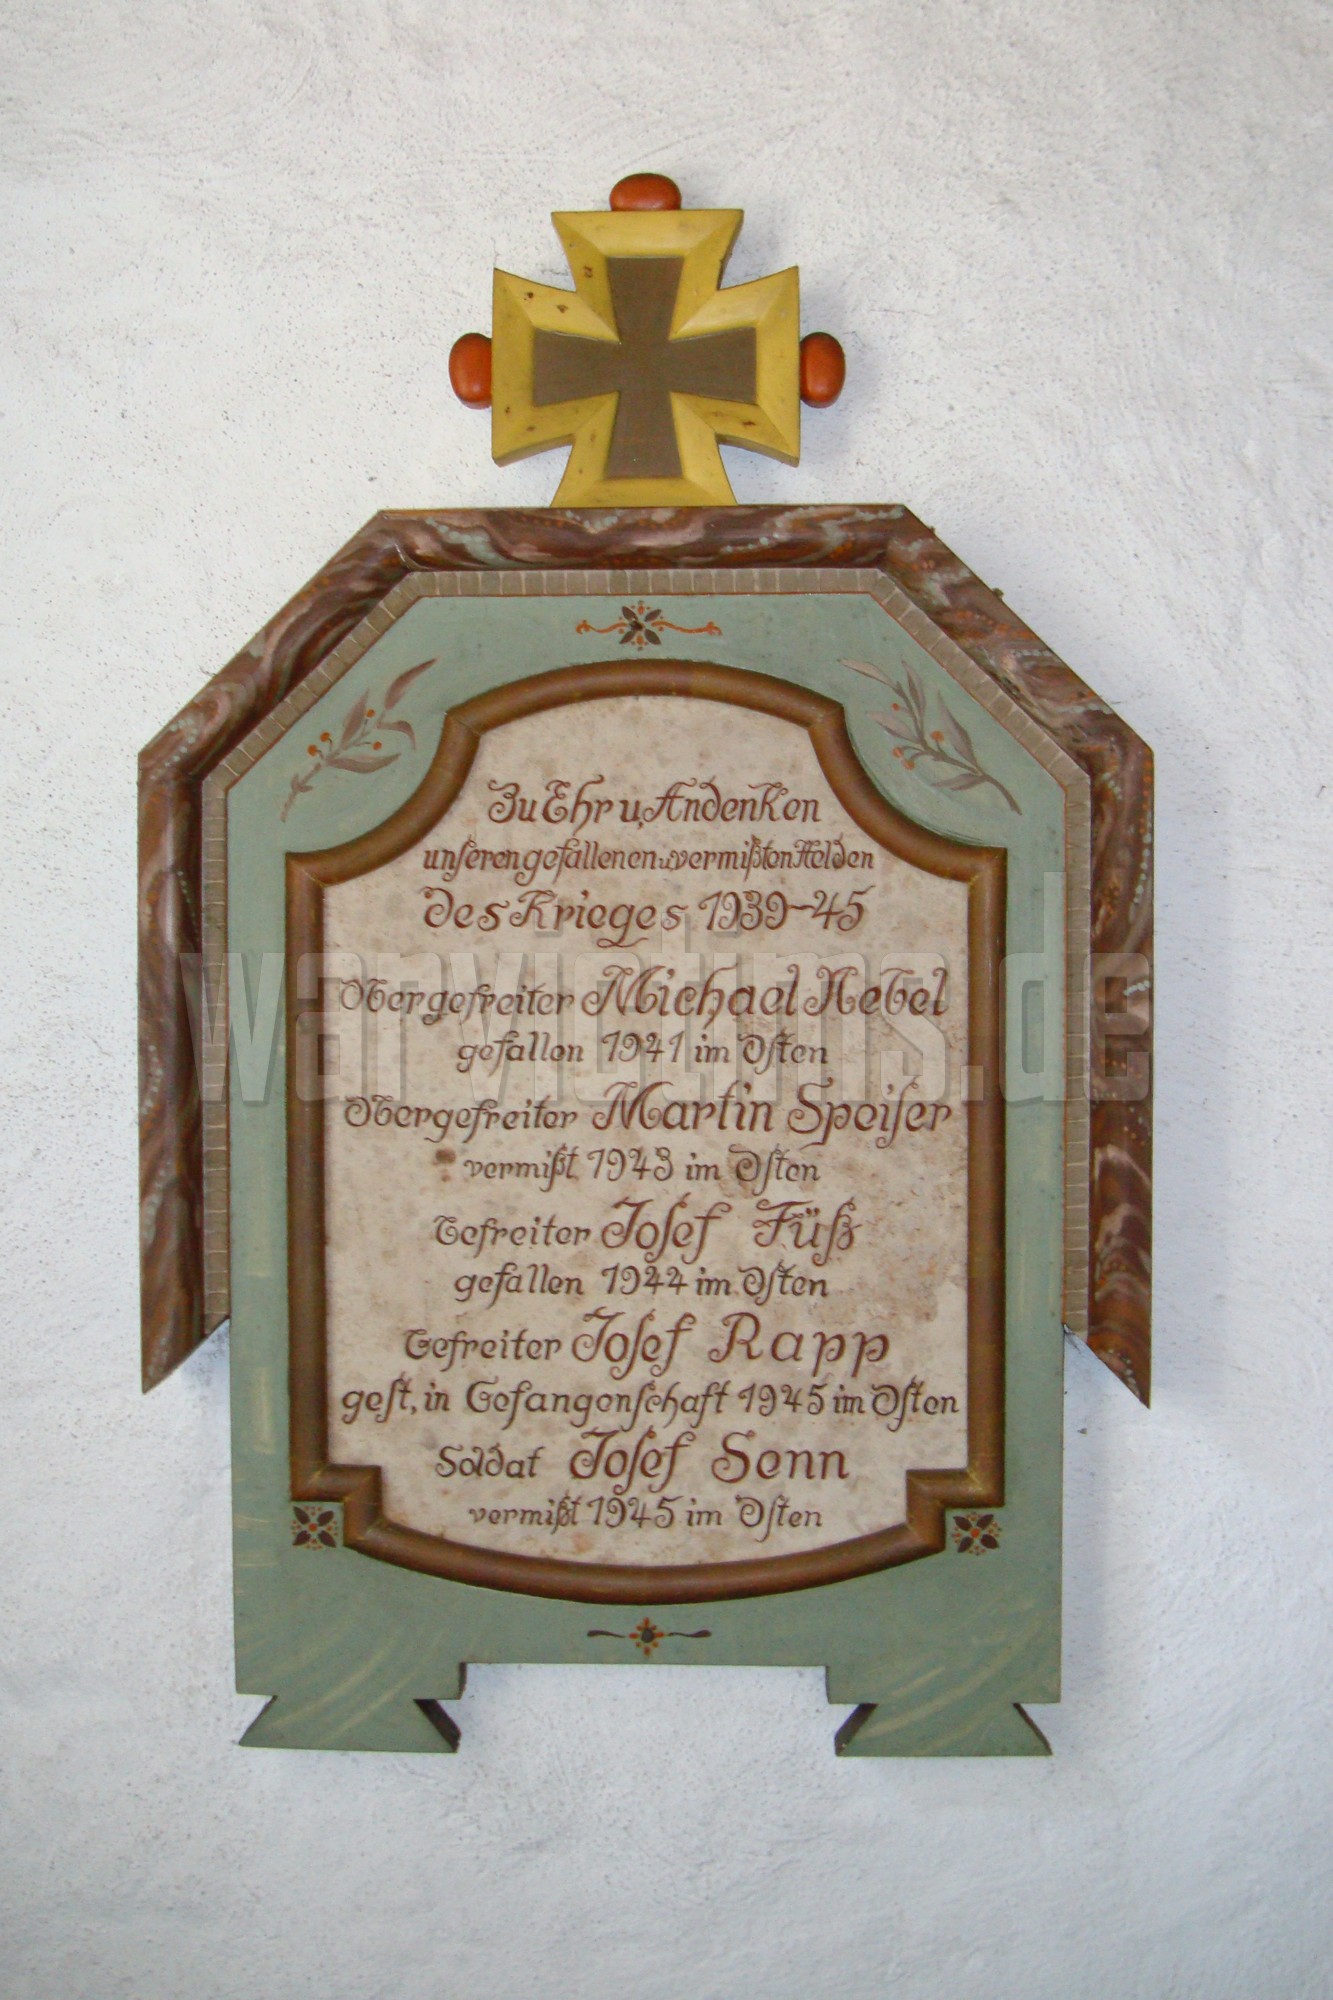 Zu Ehr u. Andenken
unseren gefallenen u. vermißten Helden
des Krieges 1939-45
Obergefreiter Michael Hebel
gefallen 1941 im Osten
Obergefreiter Martin Speiser
vermißt 1943 im Osten
Gefreiter Josef Füß
gefallen 1944 im Osten
Gefreiter Josef Rapp
gest, in Gefangenschaft 1945 im Osten
Soldat Josef Senn
vermißt 1945 im Osten
warvictims.de